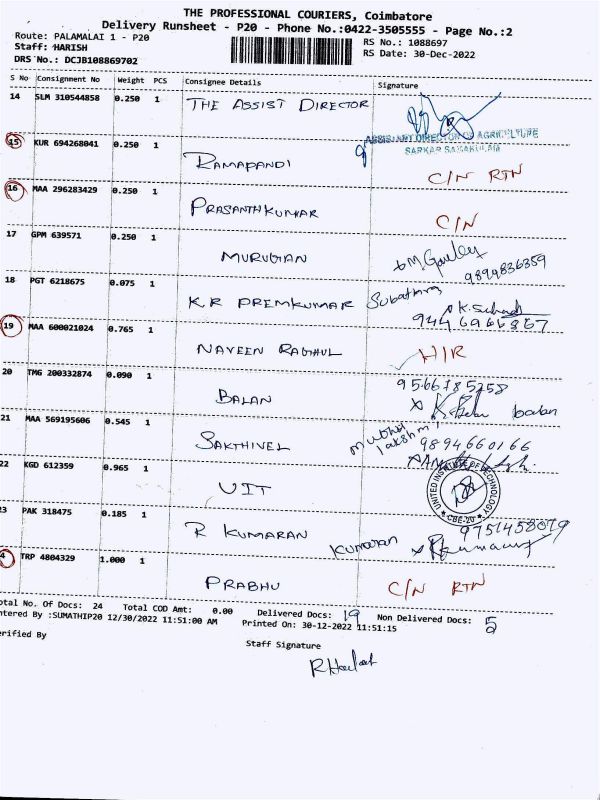 THE PROFESSIONAL COURIERS, Coimbatore
Delivery Runsheet - P20 - Phone No.:0422-3505555 - Page No.:2
Route: PALAMALAI 1 - P20
RS No.: 1088697
Staff: HARISH
RS Date: 30-Dec-2022
DRS No.: DCJB108869702
S No Consignment No Weight PCS Consignee Details Signature
14 SLM 310544858 0.250 1 THE ASSIST DIRECTOR
ASSISTANT DIRECTOR OF AGRICULTURE
SARKAR SAMAKULAM
15 KUR 694268041 0.250 1 RAMAPANDI C/N RTN
16 MAA 296283429 0.250 1 PRASANTHKUMAR C/N
17 GPM 639571 0.250 1 MURUGAN
9899836359
18 PGT 6218675 0.075 1 K.R PREMKUMAR
19 MAA 600021024 0.765 1 NAVEEN RAGHUL H/R
20 TMG 200332874 0.090 1 BALAN
balan
21 MAA 569195606 0.545 1 SAKTHIVEL
9894660166
22 KGD 612359 0.965 1 UIT
UNITED INSTITUTE OF TECHNOLOGY
CBE-20
23 PAK 318475 0.185 1 R KUMARAN Kumaran
4 TRP 4804329 1.000 1 PRABHU C/N RTN
otal No. Of Docs: 24 Total COD Amt: 0.00 Delivered Docs: 19 Non Delivered Docs: 5
ntered By :SUMATHIP20 12/30/2022 11:51:00 AM Printed On: 30-12-2022 11:51:15
erified By
Staff Signature